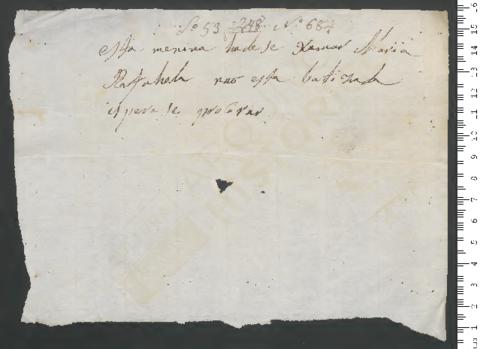 Lo 53 248 Nº 684
esta menina hade se xamar Maria
Rafahela nao esta batizada
espera se procurar